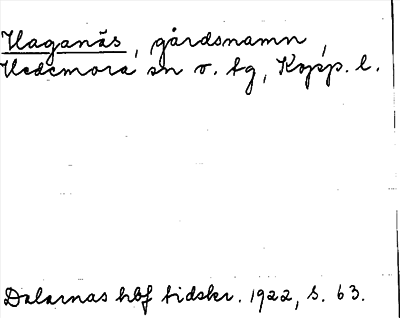 Haganäs, gårdsnamn,
Hedemora sn o. tg, Kopp. l.
Dalarnas hbf tidskr. 1922, s. 63.